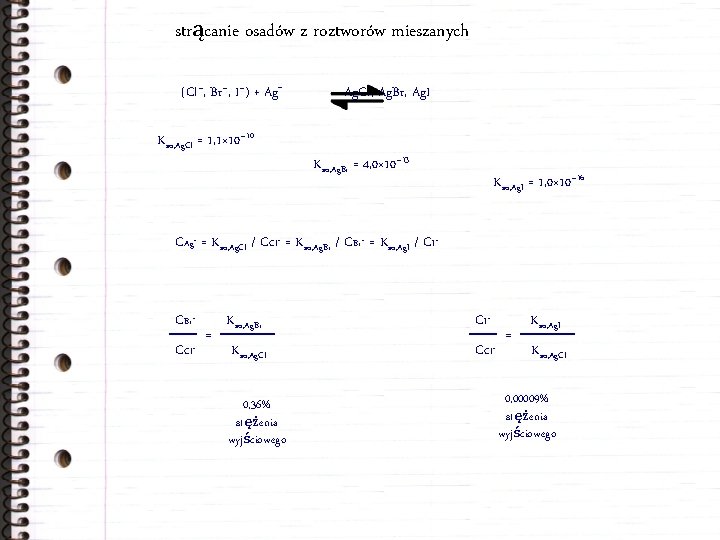 strącanie osadów z roztworów mieszanych
(Cl⁻, Br⁻, I⁻) + Ag⁺ AgCl, AgBr, AgI
Kso,AgCl = 1,1×10⁻¹⁰
Kso,AgBr = 4,0×10⁻¹³
Kso,AgI = 1,0×10⁻¹⁶
CAg⁺ = Kso,AgCl / CCl⁻ = Kso,AgBr / CBr⁻ = Kso,AgI / CI⁻
CBr⁻ Kso,AgBr CI⁻ Kso,AgI
= =
CCl⁻ Kso,AgCl CCl⁻ Kso,AgCl
0,36%
stężenia
wyjściowego
0,00009%
stężenia
wyjściowego